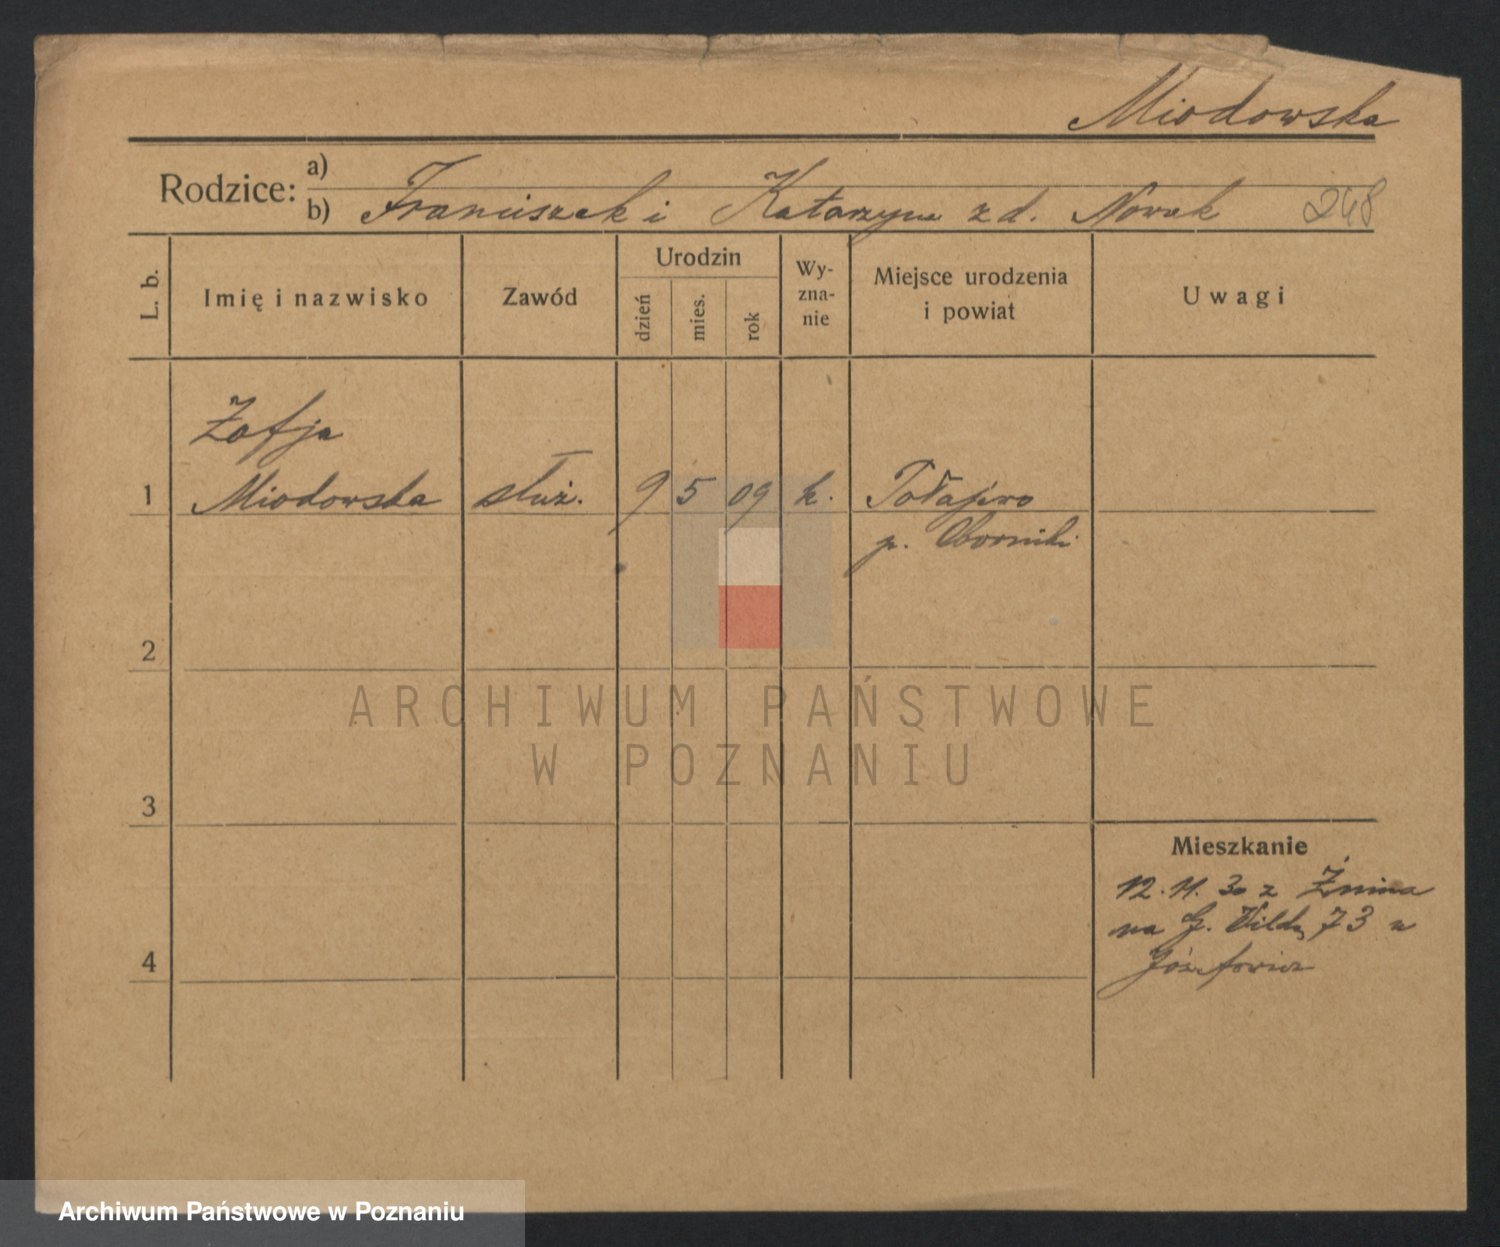 Miodowska
Rodzice: a)
b) Franciszek i Katarzyna z d. Nowak 248
L. b.
Imię i nazwisko
Zawód
Urodzin
dzień
mies.
rok
Wy-
zna-
nie
Miejsce urodzenia
i powiat
Uwagi
Zofja
1 Miodowska służ. 9 5 09 k.
p. Oborniki
2
ARCHIWUM PAŃSTWOWE
W POZNANIU
3
Mieszkanie
12. 11. 30 z Żnina
na G. Wildę 73 u
4
Archiwum Państwowe w Poznaniu